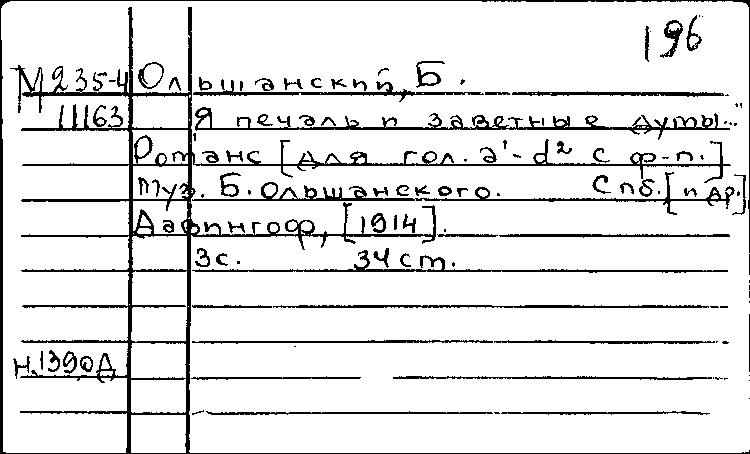 196
М 235-4 Ольшанский, Б.
11163 Я печаль и заветные думы..."
Романс [для гол. a¹-d² с ф-п.]
Муз. Б. Ольшанского. Спб. [и др.]
Давингоф, [1914].
3с. 34 см.
Н.1390Д